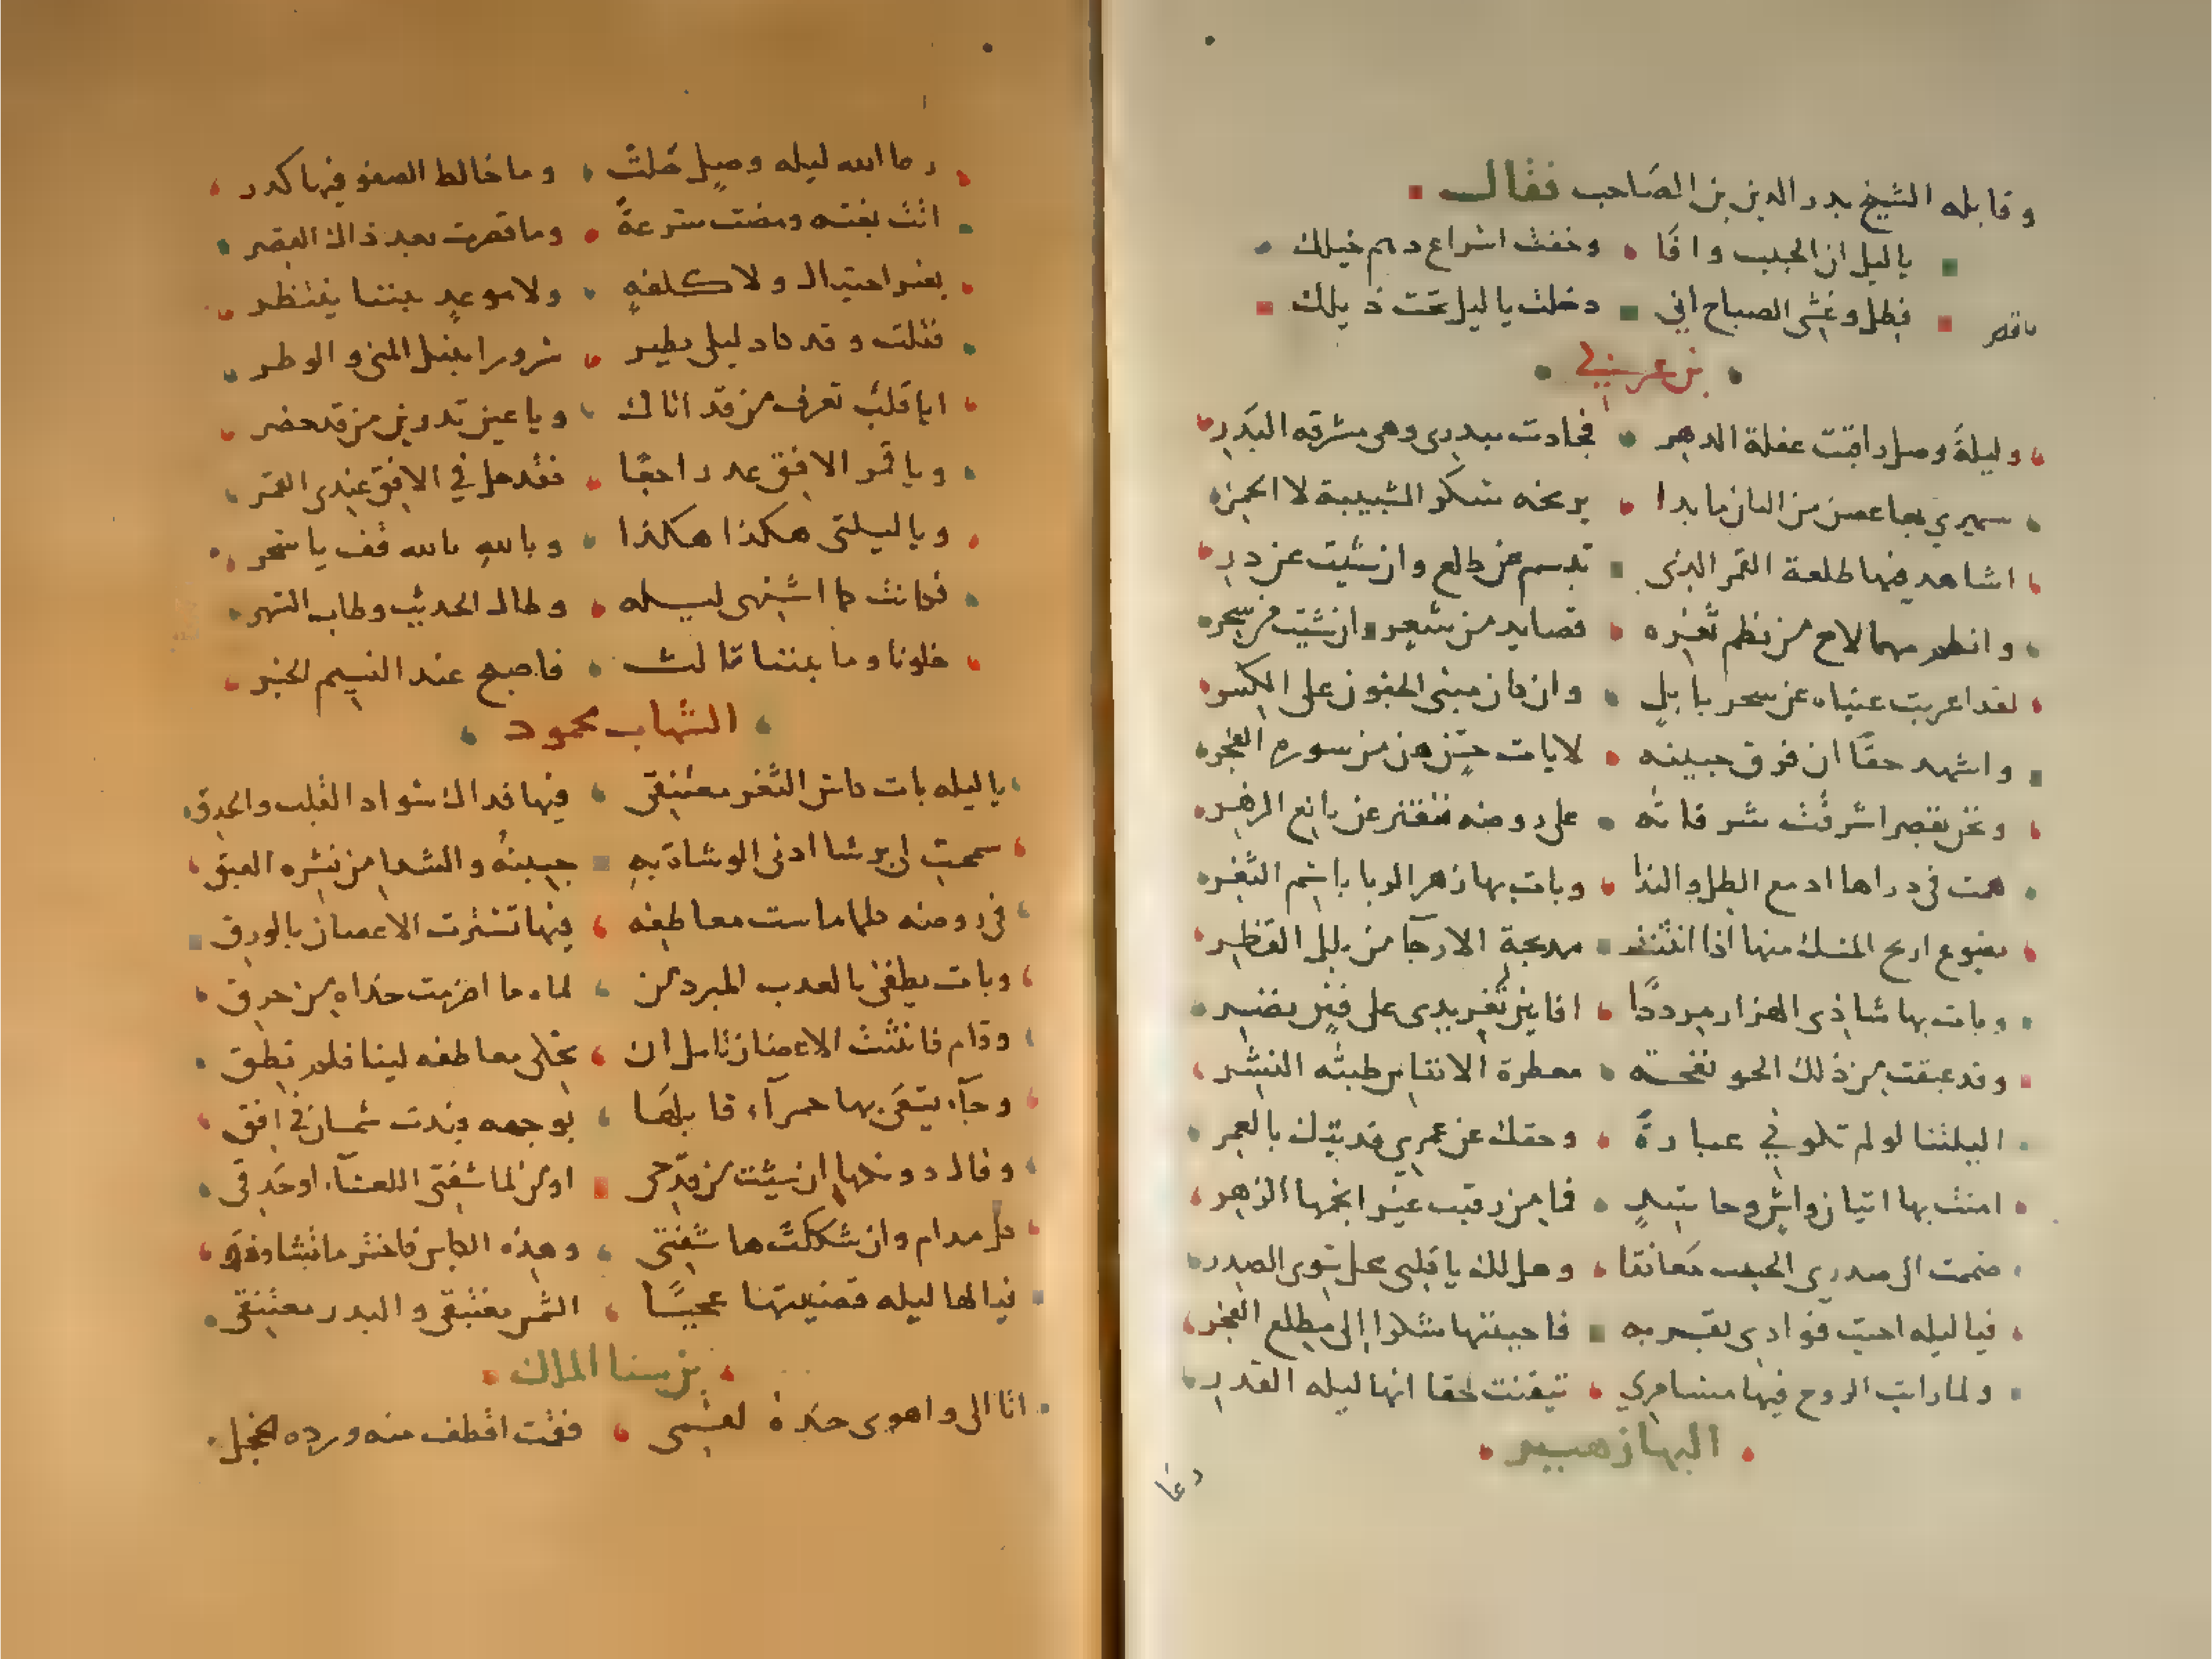 وقابله الشيخ بدر الدين بن الصاحب فقال
ياليل ان الحبيب وافا وخفت اسراع دهم خيلك
فطل وغش الصباح اني دخلت ياليل تحت ذيلك
بن عربي
وليلة وصل راقبت غفلة الدهر فجادت ببدري وهي مشرقه البدر
سميري بها غصن من البان مابدا يرنحه سكر الشبيبة لا الخمر
اشاهد فيها طلعة القمر الذي تبسم عن طلع وان شيت عن در
وانظم مهما لاح من نظم ثغره قصايد من شعر وان شيت من سحر
لقد اعربت عيناه عن سحر بابل وان كان مبني الجفون على الكسر
واشهد حقا ان فوق جبينه لايات حسن هن من سوره الفجر
ونحن بقصر اشرفت شرفاته على روضه تفتر عن يانع الزهر
همت في دراها ادمع الطل والندا وبات بها زهر الربا باسم الثغر
يضوع اريج المسك منها اذا انثنت مدبجة الارجا من بلل القطر
وبات بها شاذي الهزار مرددا افانين تغريدى على فنن نضر
وقد عبقت من ذلك الجو نفحة معطرة الانفاس طيبه النشر
اليلتنا لو لم تكوني عبارة وحقك عن عمري فديتك بالعمر
امنت بها اتيان واش وحاسد فما من رقيب غير انجمها الزهر
ضممت الى صدري الحبيب معانقا وهل لك يا قلبى محل سوى الصدر
فيا ليله احيت فوادي بقربه فاحييتها شكرا الى مطلع الفجر
ولما رايت الروح فيها مسامري تيقنت حقا انها ليله القدر
البها زهير
رعا
رعا الله ليله وصل خلت وما خالط الصفو فيها كدر
اتت بغته ومضت سرعة وما قصرت بعد ذاك القصر
بغير احتيال ولا كلفه ولا موعد بيننا ينتظر
فقلت وقد كاد ليلى يطير سرورا بنيل المنى والوطر
ايا قلب تعرف من قد اتاك ويا عين تدرين من قد حضر
ويا قمر الافق عد راجعا فقد حل في الافق عندي القمر
ويا ليلتى هكذا هكذا وبالله بالله قف يا سحر
فكانت كما اشتهى ليله وطال الحديث وطاب السهر
خلونا وما بيننا ثالث فاصبح عند النسيم الخبر
الشهاب محمود
ياليله بات كاس الثغر مغتبقي فيها فداك سواد القلب والحدق
في روضه كلما ماست معاطفه فيها تسترت الاغصان بالورق
وبات يطفى بالعدب المبرد من لماه ما اضرمت خداه من حرق
وقام فانثنت الاغصان تامل ان تحكى معاطفه لينا فلم تطق
وجاء يسقى بها حمراء قابلها بوجهه فبدت شمسان في افق
وقال دونكها ان شيت من قدحى او من لما شفتى اللعسا او حدقي
كل مدام وان شككت ها شفتى وهذه الكاس فاختر ما تشا وذق
فيا لها ليله قضيتها عجبا الشمس مغتبقى والبدر معتنقى
بن سنا الملك
اتا الى واهوى خده لفمى فقمت اقطف منه ورده الخجل